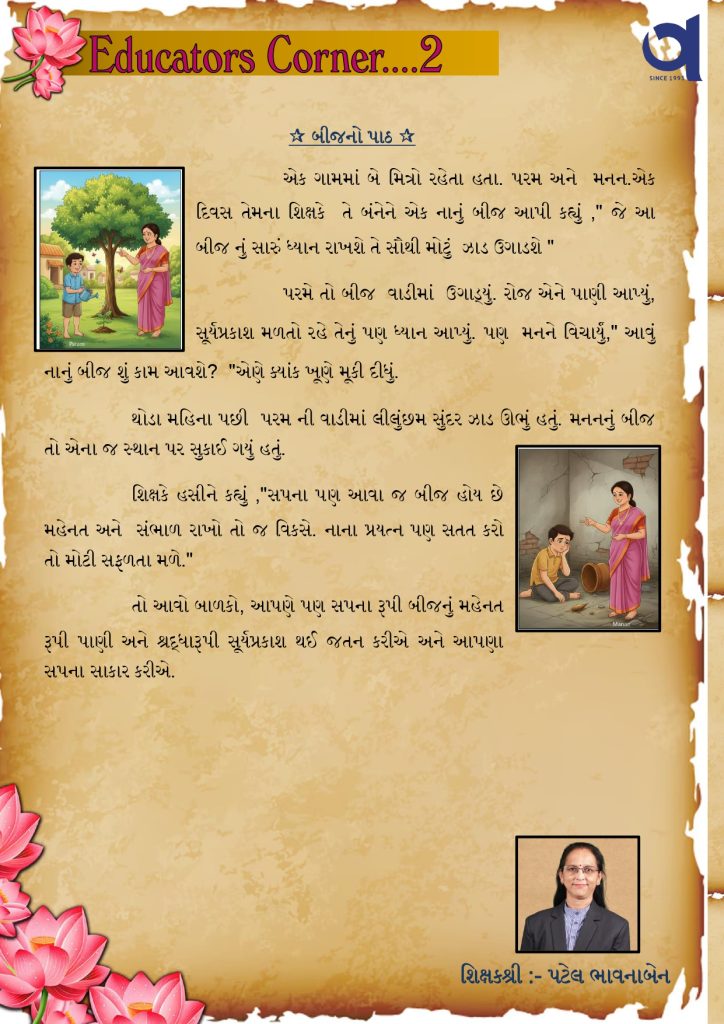 Educators Corner....2
SINCE 1993
☆ બીજનો પાઠ ☆
એક ગામમાં બે મિત્રો રહેતા હતા. પરમ અને  મનન.એક
દિવસ તેમના શિક્ષકે  તે બંનેને એક નાનું બીજ આપી કહ્યું ," જે આ
બીજ નું સારું ધ્યાન રાખશે તે સૌથી મોટું  ઝાડ ઉગાડશે "
પરમે તો બીજ  વાડીમાં  ઉગાડ્યું. રોજ એને પાણી આપ્યું,
સૂર્યપ્રકાશ મળતો રહે તેનું પણ ધ્યાન આપ્યું. પણ  મનને વિચાર્યું," આવું
નાનું બીજ શું કામ આવશે?  "એણે ક્યાંક ખૂણે મૂકી દીધું.
Param
થોડા મહિના પછી  પરમ ની વાડીમાં લીલુંછમ સુંદર ઝાડ ઊભું હતું. મનનનું બીજ
તો એના જ સ્થાન પર સુકાઈ ગયું હતું.
શિક્ષકે હસીને કહ્યું ,"સપના પણ આવા જ બીજ હોય છે
મહેનત અને  સંભાળ રાખો તો જ વિકસે. નાના પ્રયત્ન પણ સતત કરો
તો મોટી સફળતા મળે."
Manan
તો આવો બાળકો, આપણે પણ સપના રૂપી બીજનું મહેનત
રૂપી પાણી અને શ્રદ્ધારૂપી સૂર્યપ્રકાશ થઈ જતન કરીએ અને આપણા
સપના સાકાર કરીએ.
શિક્ષકશ્રી :- પટેલ ભાવનાબેન